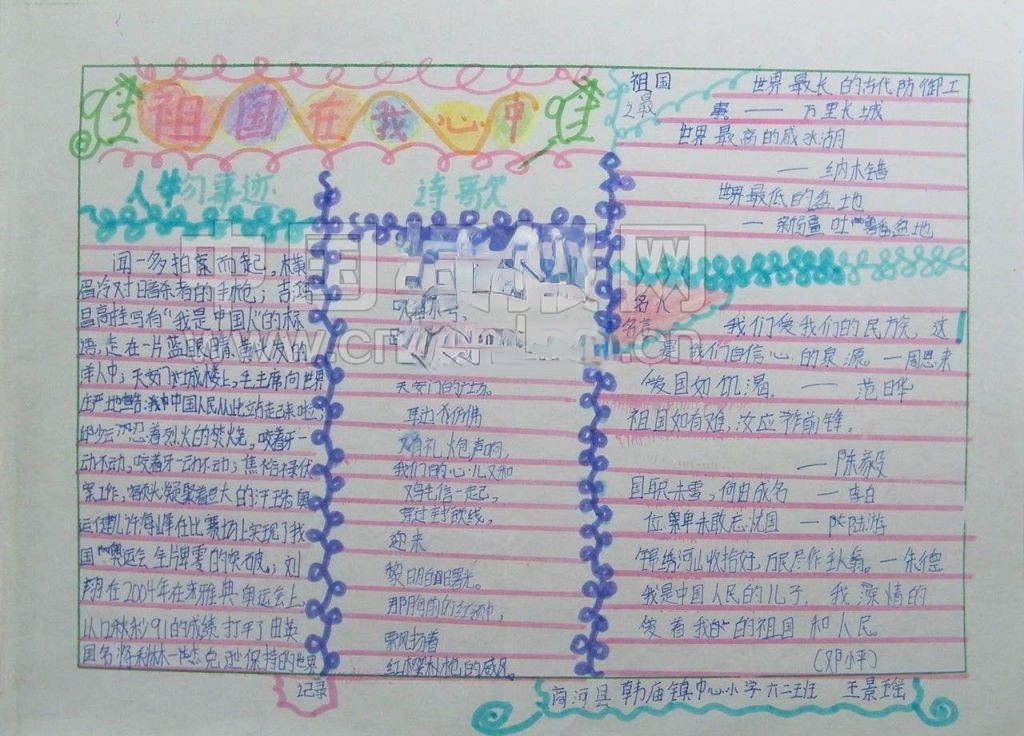 祖国在我心中
人物事迹
闻一多拍案而起,横
眉冷对暗杀者的手枪;吉鸿
昌高挂写有“我是中国人”的标
语,走在一片蓝眼睛、黄头发的
洋人中;天安门红城楼上,毛主席向世界
庄严地宣告:我中国人民从此站起来啦;
邱少云忍着烈火的焚烧,咬着牙一
动不动,咬着牙一动不动;焦裕禄伏
案工作,额头凝聚着巨大的汗珠;奥
运健儿许海峰在比赛场上实现了我
国奥运会金牌零的突破;刘
翔在2004年在雅典奥运会上,
以12秒91的成绩打平了由英
国名将科林·杰克逊保持的世界
记录
诗歌
天安门的广场。
耳边仿佛
又有礼炮声响,
我们的心儿又和
鸡毛信一起,
穿过封锁线,
迎来
黎明的曙光。
那胸前的红领巾,
飘扬着
红樱枪的威风。
祖国
之最
世界最长的古代防御工
事 —— 万里长城
世界最高的咸水湖
—— 纳木错
世界最低的盆地
— 新疆吐鲁番盆地
名人
名言
我们爱我们的民族,这
是我们自信心的泉源。—周恩来
爱国如饥渴。—— 范晔
祖国如有难,汝应作前锋。
—— 陈毅
国耻未雪,何由成名 —— 李白
位卑未敢忘忧国 —— 陆游
锦绣河山收拾好,万民尽作主人翁。—朱德
我是中国人民的儿子,我深情的
爱着我的祖国和人民。
(邓小平)
商河县韩庙镇中心小学六二班 王景瑶
中国教师网